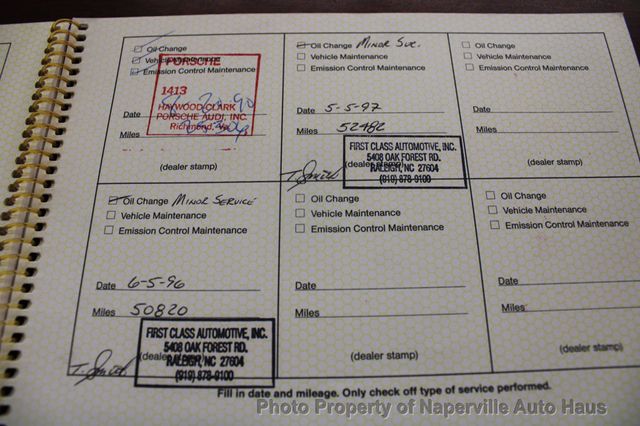 Oil Change
Vehicle Maintenance
Emission Control Maintenance
PORSCHE
1413
HAYWOOD/CLARK
PORSCHE AUDI, INC.
Richmond, Va.
Date
Miles
(dealer stamp)
Oil Change Minor Svc.
Vehicle Maintenance
Emission Control Maintenance
Date 5-5-97
Miles 52482
FIRST CLASS AUTOMOTIVE, INC.
5408 OAK FOREST RD.
(dealer stamp)
RALEIGH, NC 27604
(919) 878-9100
T. Smith
Oil Change
Vehicle Maintenance
Emission Control Maintenance
Date
Miles
(dealer stamp)
Oil Change Minor Service
Vehicle Maintenance
Emission Control Maintenance
Date 6-5-96
Miles 50820
FIRST CLASS AUTOMOTIVE, INC.
5408 OAK FOREST RD.
(dealer stamp)
RALEIGH, NC 27604
(919) 878-9100
T. Smith
Oil Change
Vehicle Maintenance
Emission Control Maintenance
Date
Miles
(dealer stamp)
Oil Change
Vehicle Maintenance
Emission Control Maintenance
Date
Miles
(dealer stamp)
Fill in date and mileage. Only check off type of service performed.
Photo Property of Naperville Auto Haus